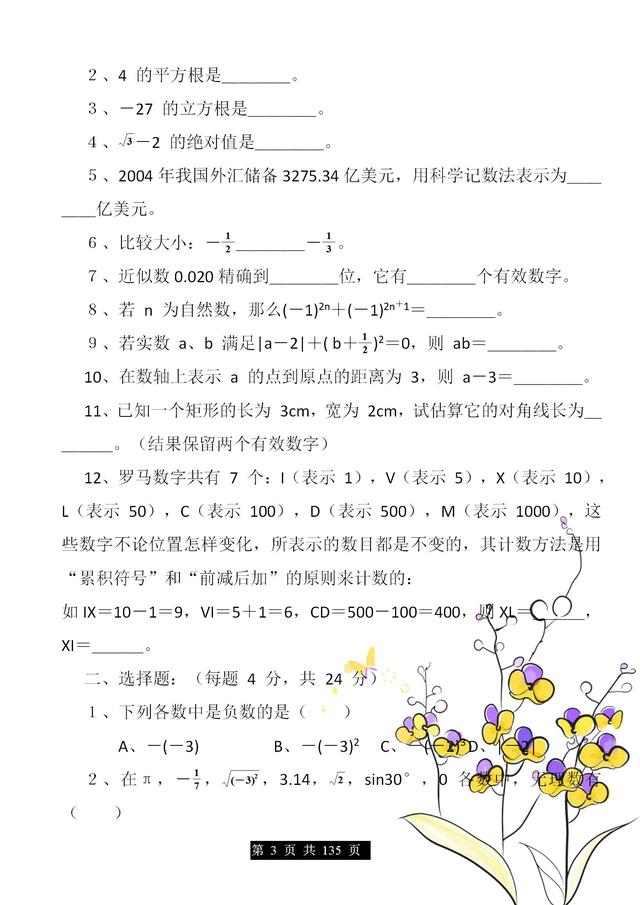 ２、4 的平方根是________。
３、－27 的立方根是________。
４、√3－2 的绝对值是________。
５、2004 年我国外汇储备 3275.34 亿美元，用科学记数法表示为____
____亿美元。
６、比较大小：－1/2________－1/3。
７、近似数 0.020 精确到________位，它有________个有效数字。
８、若 n 为自然数，那么(－1)²ⁿ＋(－1)²ⁿ⁺¹＝________。
９、若实数 a、b 满足|a－2|＋( b＋1/2)²＝0，则 ab＝________。
10、在数轴上表示 a 的点到原点的距离为 3，则 a－3＝________。
11、已知一个矩形的长为 3cm，宽为 2cm，试估算它的对角线长为__
______。（结果保留两个有效数字）
12、罗马数字共有 7 个：I（表示 1），V（表示 5），X（表示 10），
L（表示 50），C（表示 100），D（表示 500），M（表示 1000），这
些数字不论位置怎样变化，所表示的数目都是不变的，其计数方法是用
“累积符号”和“前减后加”的原则来计数的：
如 IX＝10－1＝9，VI＝5＋1＝6，CD＝500－100＝400，则 XL＝______，
XI＝______。
二、选择题：（每题 4 分，共 24 分）
１、下列各数中是负数的是（　　）
A、－(－3)　　B、－(－3)²　C、－(－2)³D、|－2|
２、在π，－1/7，√(－3)²，3.14，√2，sin30°，0 各数中，无理数有
（　　）
第 3 页 共 135 页